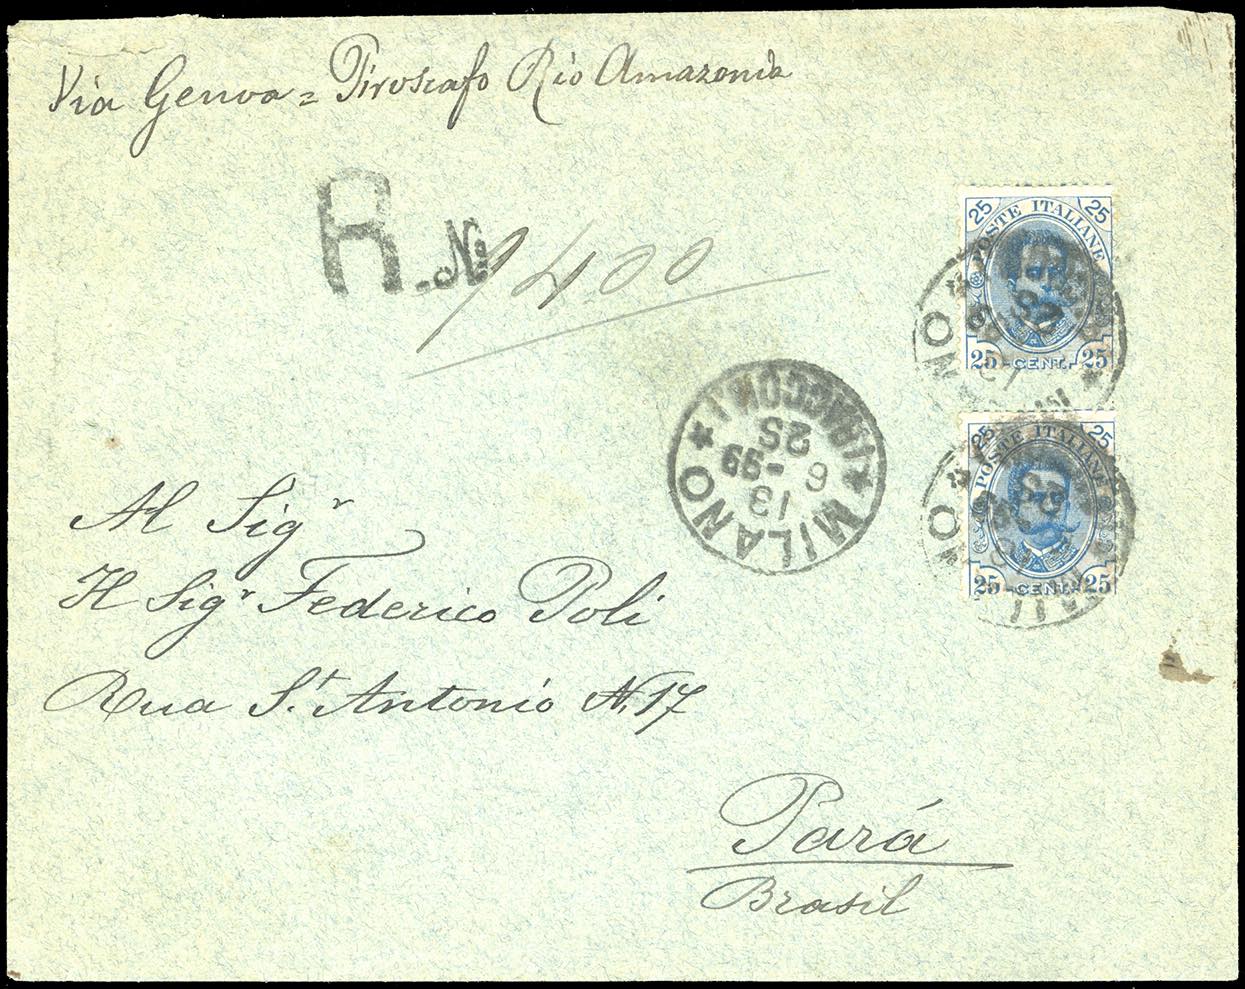 Via Genova = Piroscafo Rio Amazonia
R.N 9400
25 POSTE ITALIANE 25
25 -CENT.- 25
MILANO
* (RACCOM.) *
13
6 - 99
2S
25 POSTE ITALIANE 25
25 -CENT.- 25
Al Sigr
Il Sigr Federico Poli
Rua St. Antonio N. 17
Pará
Brasil